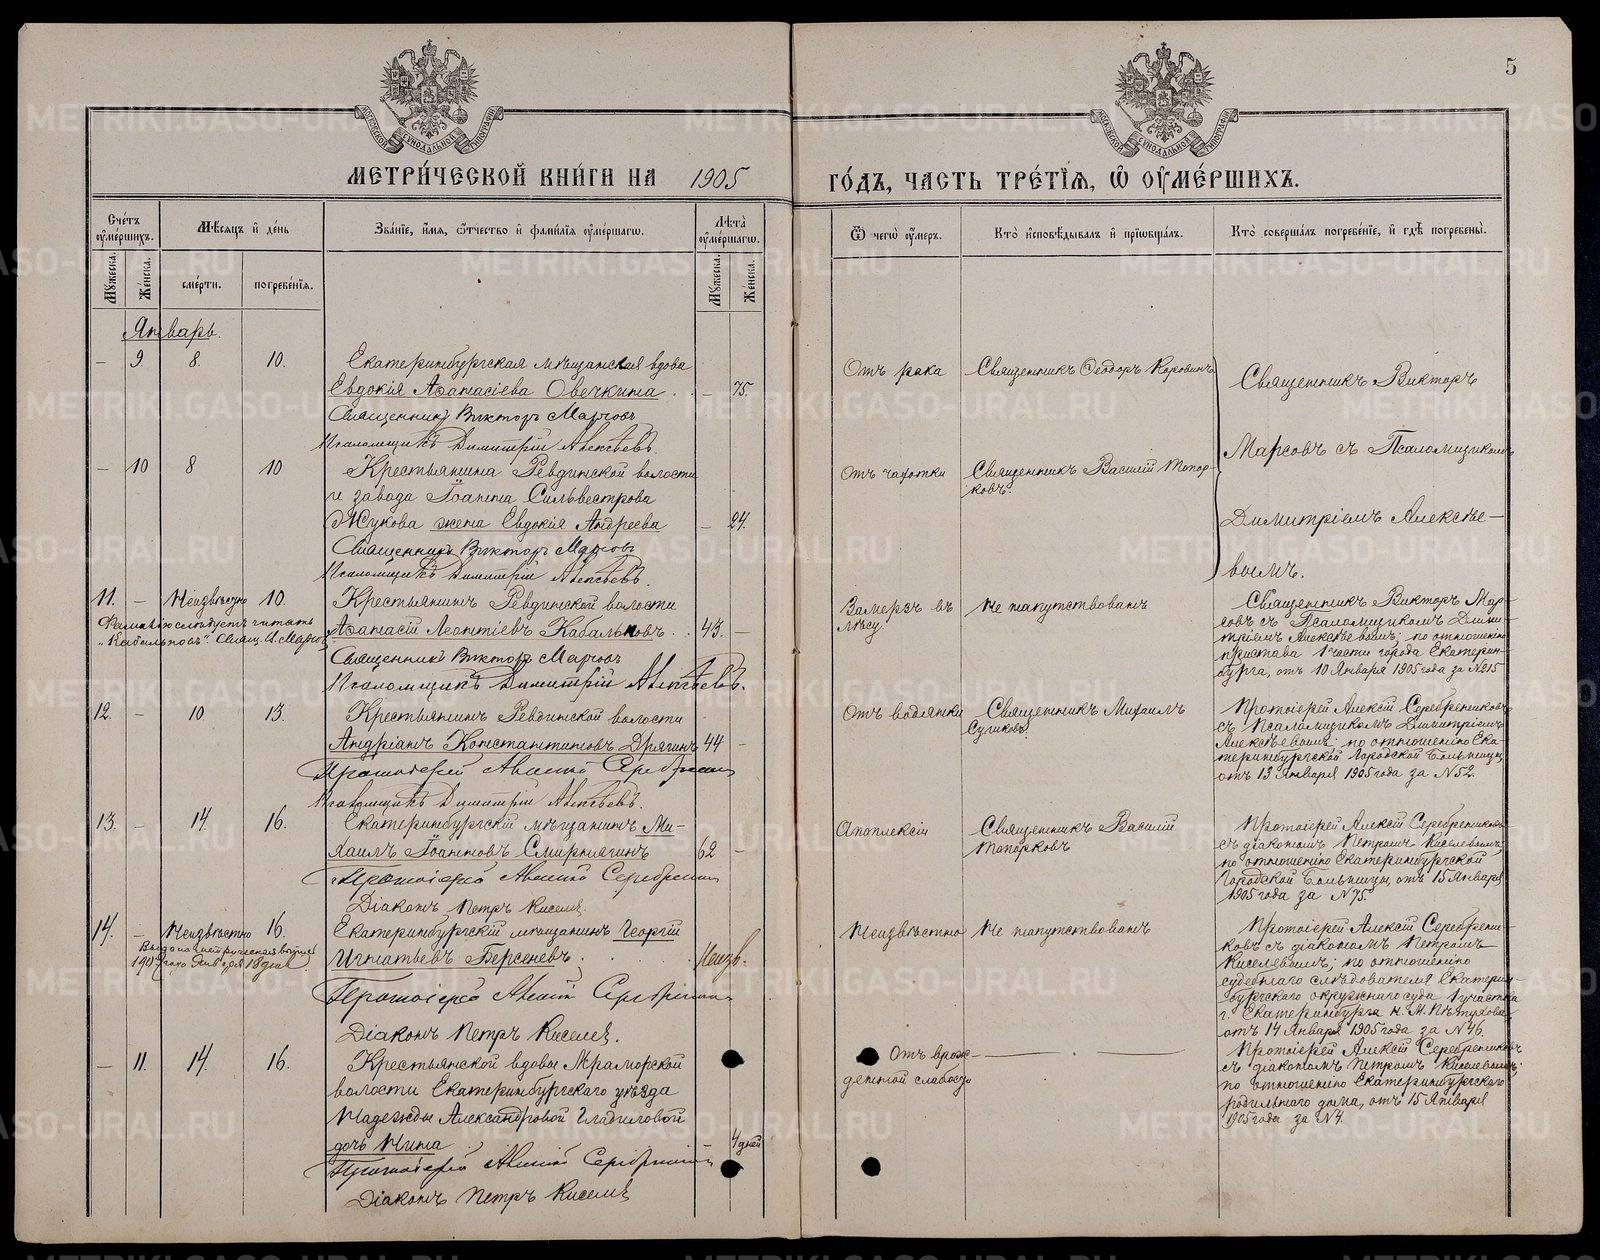 5
МЕТРИ́ЧЕСКОЙ КНИ́ГИ НА 1905 ГО́ДЪ, ЧАСТЬ ТРЕ́ТІѦ, Ѽ ОУ҆МЕ́РШИХЪ.
Сче́тъ оу҆ме́ршихъ.
Мꙋжеска.
Же́нска.
Мѣ́сѧцъ и҆ де́нь
сме́рти.
погребе́нїѧ.
Зва́нїе, и҆́мѧ, ѻ҆́тчество и҆ фами́лїѧ оу҆ме́ршагѡ.
Лѣ́та оу҆ме́ршагѡ.
Мꙋжеска.
Же́нска.
Ѿ чегѡ̀ оу҆́меръ.
Кто̀ и҆сповѣ́дывалъ и҆ прїѡбща́лъ.
Кто̀ соверша́лъ погребе́нїе, и҆ гдѣ̀ погребены̀.
Январь.
— 9. 8. 10. Екатеринбургская мѣщанская вдова
Евдокія Аѳанасіева Овечкина . . — 75.
Священникъ Викторъ Марсовъ
Псаломщикъ Димитрій Алексѣевъ.
Отъ рака
Священникъ Ѳеодоръ Коровинъ
Священникъ Викторъ
Марсовъ съ Псаломщикомъ
Димитріемъ Алексѣе—
вымъ.
— 10 8 10 Крестьянина Ревдинской волости
и завода Іоанна Сильвестрова
Жукова жена Евдокія Андреева — 24.
Священникъ Викторъ Марсовъ
Псаломщикъ Димитрій Алексѣевъ.
Отъ чахотки
Священникъ Василій Топор-
ковъ.
11. — Неизвѣстно 10. Крестьянинъ Ревдинской волости
Аѳанасій Леонтіевъ Кабальновъ. . 43. —
Фамилію слѣдуетъ читать
„Кабальновъ“ Свящ. В. Марсовъ
Священникъ Викторъ Марсовъ
Псаломщикъ Димитрій Алексѣевъ.
Замерзъ въ
лѣсу.
Не напутствованъ
Священникъ Викторъ Мар-
совъ съ Псаломщикомъ Дими-
тріемъ Алексѣевымъ; по отношенію
пристава 1 части города Екатерин-
бурга, отъ 10 Января 1905 года за №215
12. — 10. 13. Крестьянинъ Ревдинской волости
Андріанъ Константиновъ Дрягинъ 44 —
Протоіерей Алексій Серебрениковъ
Псаломщикъ Димитрій Алексѣевъ.
Отъ водянки
Священникъ Михаилъ
Сугиковъ.
Протоіерей Алексій Серебрениковъ
съ Псаломщикомъ Димитріемъ
Алексѣевымъ; по отношенію Ека-
теринбургской Городской Больницы,
отъ 13 Января 1905 года за №52.
13. — 14. 16. Екатеринбургскій мѣщанинъ Ми-
хаилъ Іоанновъ Смирнягинъ 62 —
Протоіерей Алексій Серебрениковъ
Діаконъ Петръ Киселевъ.
Апоплексіи
Священникъ Василій
Топорковъ
Протоіерей Алексій Серебрениковъ
съ діакономъ Петромъ Киселевымъ
по отношенію Екатеринбургской
Городской Больницы, отъ 15 Января
1905 года за №75.
14. — Неизвѣстно 16. Екатеринбургскій мѣщанинъ Георгій
Игнатьевъ Берсеневъ. . . . . Неизв.
Протоіерей Алексій Серебрениковъ
Діаконъ Петръ Киселевъ.
Неизвѣстно
Не напутствованъ
Протоіерей Алексій Серебрени-
ковъ съ діакономъ Петромъ
Киселевымъ; по отношенію
судебнаго слѣдователя Екатерин-
бургскаго окружнаго суда 1 участка
г. Екатеринбурга Н. М. Пѣтухова
отъ 14 Января 1905 года за №46.
— 11. 14. 16. Крестьянской вдовы Мраморской
волости Екатеринбургскаго уѣзда
Надежды Александровой Гладиловой
дочь Нина 4 дней
Протоіерей Алексій Серебрениковъ
Діаконъ Петръ Киселевъ
Отъ врож-
денной слабости
Протоіерей Алексій Серебрениковъ
съ діакономъ Петромъ Киселевымъ;
по отношенію Екатеринбургскаго
родильнаго дома, отъ 15 Января
1905 года за №4.
METRIKI.GASO-URAL.RU